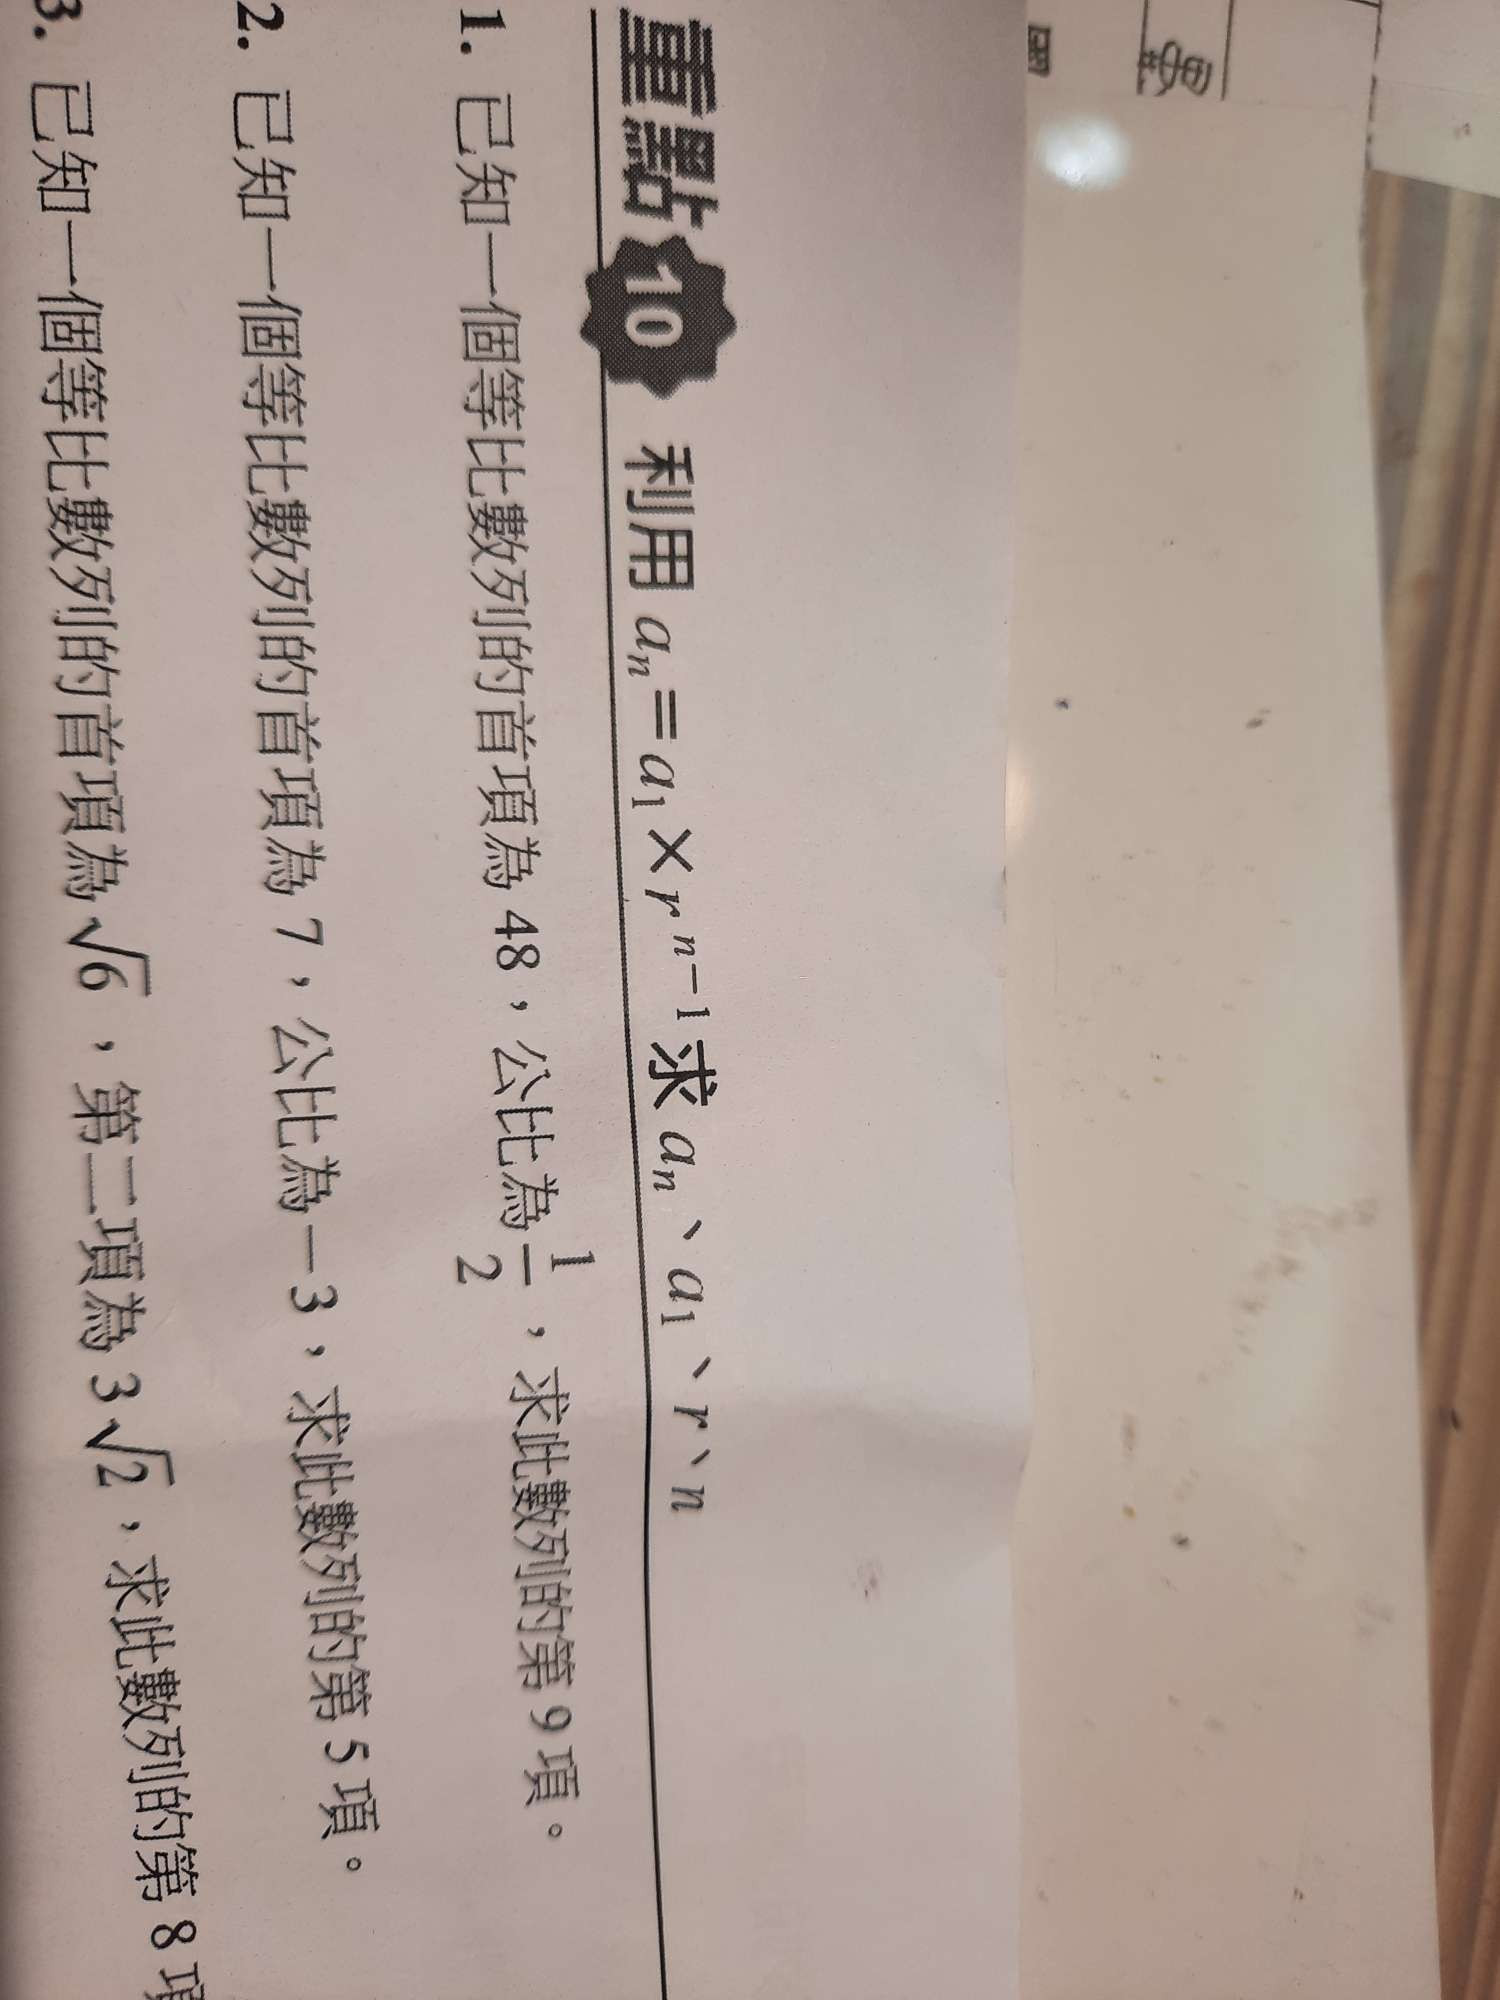 重點 10 利用 aₙ=a₁×rⁿ⁻¹求 aₙ、a₁、r、n
1. 已知一個等比數列的首項為 48，公比為 1/2，求此數列的第 9 項。
2. 已知一個等比數列的首項為 7，公比為－3，求此數列的第 5 項。
3. 已知一個等比數列的首項為 √6，第二項為 3√2，求此數列的第 8 項